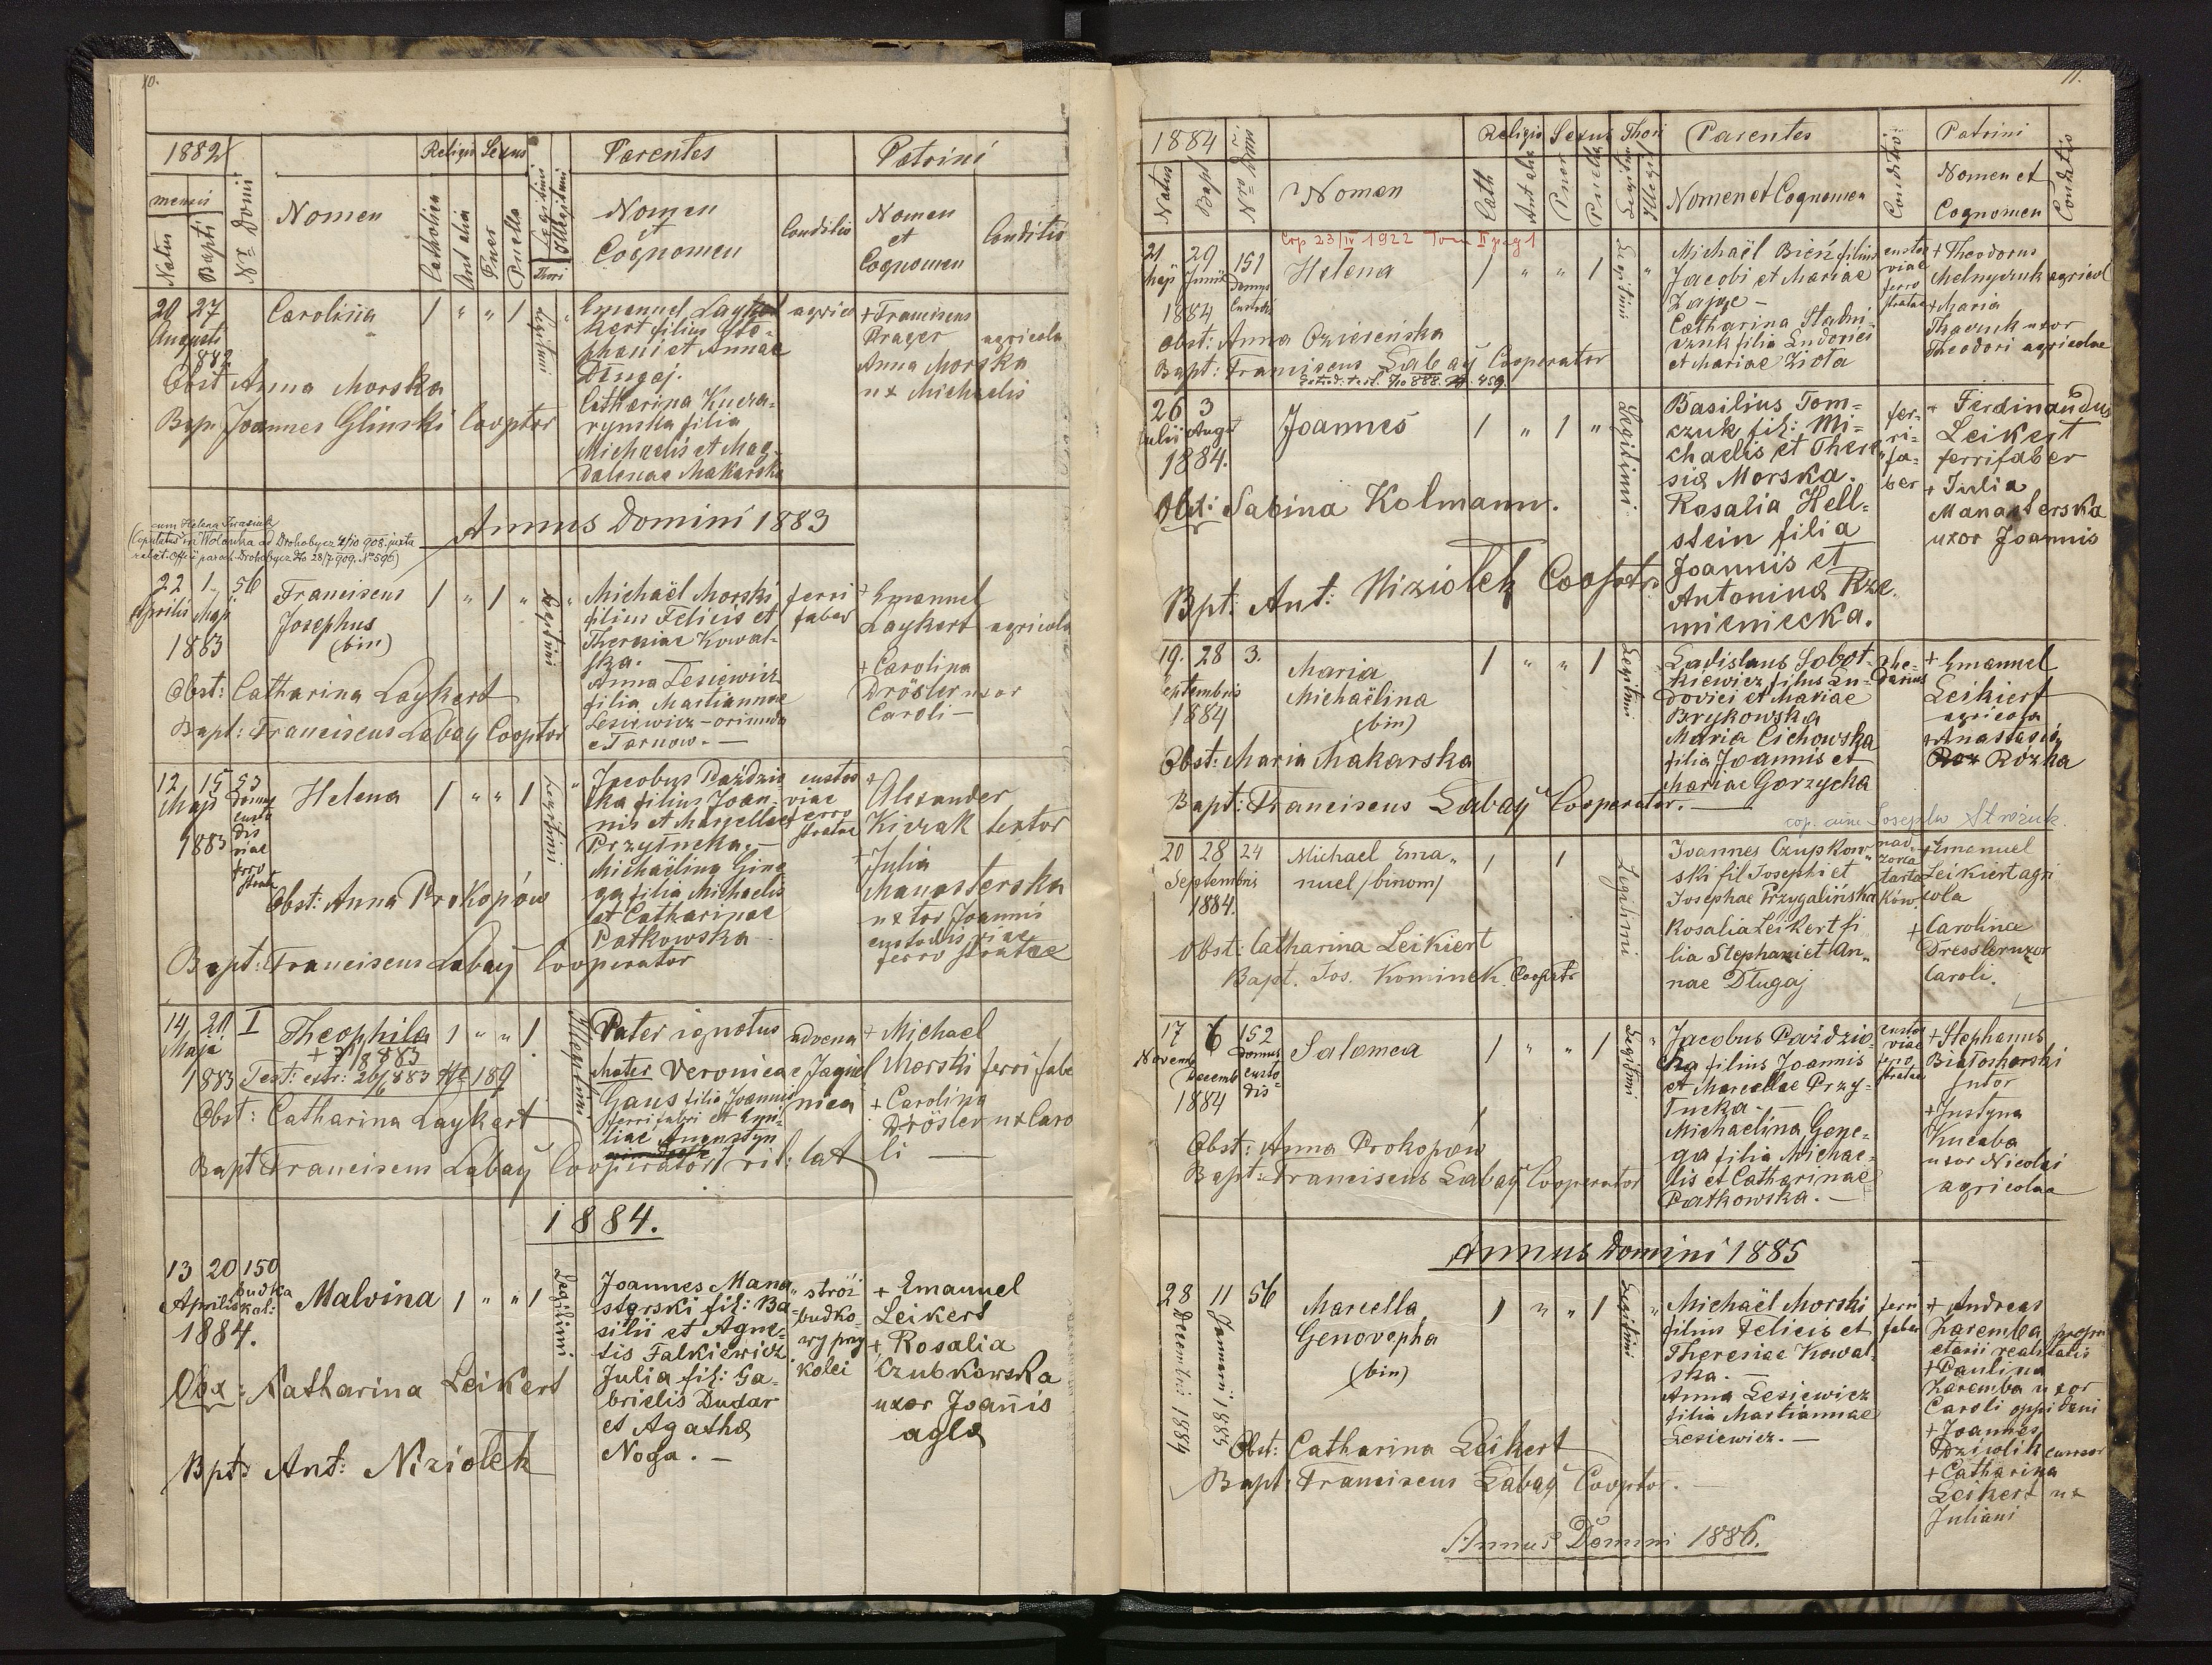 10.
1882
Religio Sexus
Parentes
Patrini
mensis
Natus
Bapti
Nr Domi
Nomen
Catholica
Aut alia
Puer
Puella
Legitimi
Illegitimi
Thori
Nomen
et
Cognomen
Conditio
Nomen
et
Cognomen
Conditio
20 27
Augusti
1882
Carolina
1 " " 1
Legitimi
Emanuel Laykert
kert filius Ste-
phani et Annae
Długaj.
Catharina Kucza-
rynska filia
Michaelis et Mag-
dalenae Makarska
agrico
+ Franciscus
Prager agricola
Anna Morska
ux Michaelis
Obst Anna Morska
Bap. Joannes Glinski Cooptor
Annus Domini 1883
cum Helena
(Copulatus in Wolanka ad Drohobycz 4/10 908. juxta
relat. Offic paroch Drohobycz dto 28/7 909. No 596)
22 1. 56
Aprilis Maji
1883
Franciscus
Josephus
(bin)
1 " 1 "
Legitimi
Michaël Morski
filius Felicis et
Theresiae Kowal-
ska. —
Anna Lesiewicz
filia Martiannae
Lesiewicz - oriunda
e Tarnow. —
ferri
faber
+ Emanuel
Laykert agricola
+ Carolina
Drösler uxor
Caroli —
Obst: Catharina Laykert
Bapt: Franciscus Labay Cooptor
12 15 53
Maji
1883
Domus
custo
dis
viae
ferro
strate
Helena
1 " " 1
Legitimi
Jacobus Paździo
ka filius Joan-
nis et Marcellae
Przytucka. —
Michaëlina Gine
ga filia Michaelis
et Catharinae
Patkowska
custos
viae
ferro
stratae
+
Alexander
Kiczak textor
+ Julia
Manasterska
uxor Joannis
custodis viae
ferro stratae
Obst: Anna Prokopów
Bapt: Franciscus Labay Cooperator
14 20 I
Maji
1883
Theophila
+ 7/8 883
1 " " 1
Test: extr: 26/6 883 No 189
Illegitimi
Pater ignotus
Mater Veronica
Gaus filia Joannis
ferri fabri et
liae Augustyn
advena
e Jagiel
nica
+ Michael
Morski ferri fabe
+ Carolina
Drösler ux Caro
li —
Obst: Catharina Laykert
Bapt Franciscus Labay Cooperator rit: lat
1884.
13 20 150
Aprilis
1884.
budka
kol:
Malvina
1 " " 1
Legitimi
Joannes Mana
sterski fil: Ba-
silii et Agne-
tis Falkiewicz.
Julia fil: Ga-
brielis Dudar
et Agathæ
Noga. —
stróż
budko-
wy przy
kolei
+ Emanuel
Leikert
+ Rosalia
Czubkowska
uxor Joannis
aglæ
Obx: Katharina Leikert
Bpt: Ant: Niziołek
11.
1884
Nr domus
Religio Sexus Thori
Parentes
Patrini
Natus
Bapt
Nomen
Cath
Aut alia
Puer
Puella
Legitimi
Illegit
Nomen et Cognomen
Conditio
Nomen et
Cognomen
Conditio
Cop 23/IV 1922 Tom II pag 1
21 29 151
Maji Junii
1884
Domus
Custodis
Helena
1 " " 1
Legitimi
Michaël Bień filius
Jacobi et Mariae
Zając —
Catharina Stadni-
czuk filia Ludovici
et Mariae Ziota
custos
viae
ferro
stratae
+ Theodorus
Melnyczuk agricol
+ Maria
Tkaczuk uxor
Theodori agricolae
Obst: Anna Ozirenska
Bapt: Franciscus Labay Cooperator
26 3
Julii Augt
1884.
Joannes
1 " 1 "
Legitimi
Basilius Tom-
czuk fil: Mi-
chaelis et There-
siæ Morska.
Rosalia Hell-
stein filia
Joannis et
Antoninæ Rze-
mieniecka.
fer-
ri-
fa-
ber
+ Ferdinandus
Leikert
ferrifaber
+ Julia
Manasterska
uxor Joannis
Obst: Sabina Kolmann.
Bpt: Ant: Niziołek Cooptr.
19. 28 3.
Septembris
1884
Maria
Michaëlina
(bin)
1 " " 1
Legitimi
Ladislaus Sobot-
kiewicz filius Lu-
dovici et Mariae
Brykowska
Maria Cichowska
filia Joannis et
Mariae Gorzycka
+ Emanuel
Leikiert
agricola
+ Anastasia
Rózka
Obst: Maria Makarska
Bapt: Franciscus Labay Cooperator.
cop. cum Josepho Stróżuk.
20 28 24
Septembris
1884.
Michael Ema-
nuel /binom/
1 1
Legitimi
Joannes Czupkow-
ski fil Josephi et
Josephae Przygalińska
Rosalia Leikert fi
lia Stephani et An-
nae Długaj
nad
zorca
tarta
ków.
+ Emanuel
Leikiert agri
cola
+ Carolina
Dressler uxor
Caroli.
Obst: Catharina Leikiert
Bapt. Jos. Kominek Cooptr
17 6 152
Novemb
Decemb
1884
Domus
custo-
dis
Salomea
1 " " 1
Legitimi
Jacobus Paździo-
cha filius Joannis
et Marcellae Przy-
tucka. —
Michaelina Gene-
ga filia Michae-
lis et Catharinae
Patkowska. —
custos
viae
ferro
stratae
+ Stephanus
Białoskorski
sutor
+ Justyna
Kucaba
uxor Nicolai
agricolae
Obst: Anna Prokopów
Bapt: Franciscus Labay Cooperator
Annus Domini 1885
28 11 56
Decembris 1884
Januarii 1885
Marcella
Genovepha
(bin)
1 " " 1
Legitimi
Michaël Morski
filius Felicis et
Theresiae Kowal-
ska. —
Anna Lesiewicz
filia Martiannae
Lesiewicz. —
ferri
faber
+ Andreas
Zaremba propri
etarii realitatis
+ Paulina
Zaremba uxor
Caroli oppidani
+ Joannes
Dziwlik cursor
+ Catharina
Leikert ux
Juliani
Obst: Catharina Leikert
Bapt: Franciscus Labay Cooptor.
Annus Domini 1886.